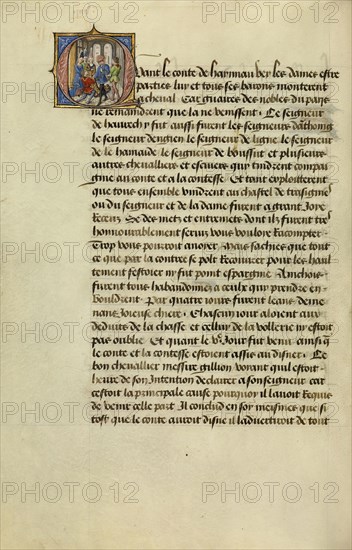 Quant le conte de haynnau vey les dames estre
parties luy et tous ses barons monterent
a cheval Car guaires des nobles du pays
ne remaindrent que la ne venissent Le seigneur
de havrech y fut aussi furent les seigneurs dathoing
le seigneur denghien le seigneur de ligne le seigneur
de la hamaide le seigneur de boussut et pluiseurs
autres chevalliers et escuiers qui tindrent compai
gnie au conte et a la contesse Et tant exploitterent
que tous ensemble vindrent au chastel de trasignies
ou du seigneur et de la dame furent a grant Joye
Receuz Se des metz et entremetz dont ilz furent tres
honnourablement servis vous vouloye Racompter
Trop vous pourroit anoyer Mais sachies que tout
ce que par la contree se polt Recouvrer pour les haul
tement festoier ny fut point espargnie Ainchois
furent tous habandonnez a ceulx qui prendre en
vouldrent Par quatre jours furent leans deme
nans Joieuse chiere Chascun jour aloient aux
deduits de la chasse et cellui de la vollerie ny estoit
pas oublie Et quant le Ve Jour fut venu ainsi que
le conte et la contesse estoient assis au disner Le
bon chevallier messire gillion voyant quil estoit
heure de son Intention declairer a son seigneur car
cestoit la principale cause pourquoy il lavoit Requis
de venir celle part Il conclud en soy meismes que si
tost que le conte auroit disne il ladvertiroit de tout